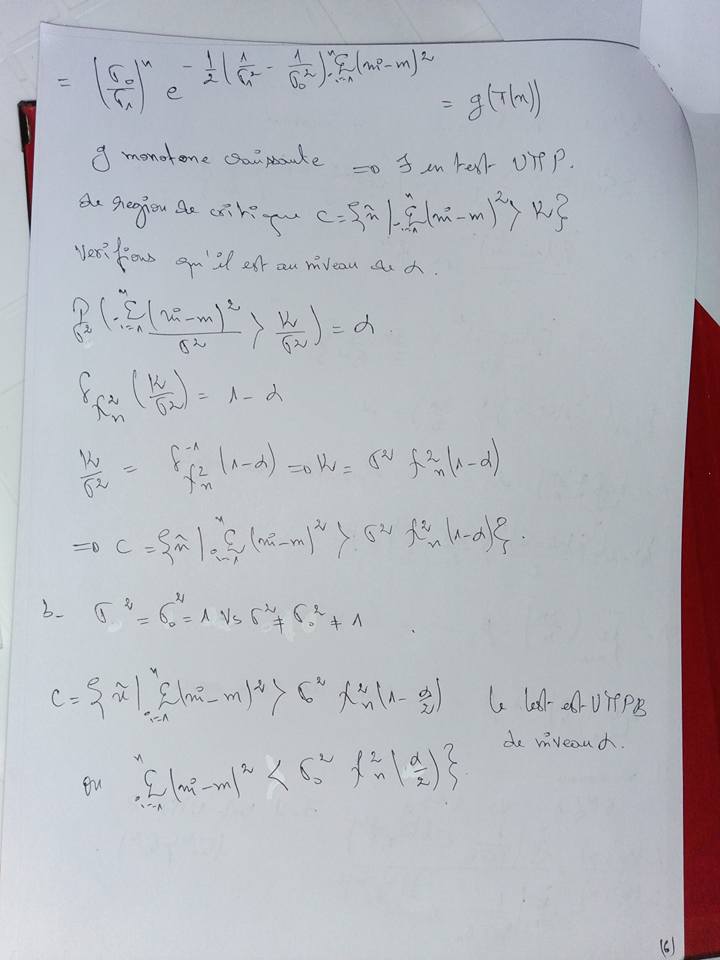 = (σ₀/σ₁)ⁿ e^{-1/2 (1/σ₁² - 1/σ₀²) Σ_{i=1}^n (xi-m)²} = g(T(x))
g monotone croissante => ∃ en test UMP.
de region de critique C = {x̃ | Σ_{i=1}^n (xi-m)² > K}
Verifions qu'il est au niveau de α.
P_{σ²} ( Σ_{i=1}^n (xi-m)²/σ² > K/σ² ) = α
F_{χ²n} (K/σ²) = 1-α
K/σ² = F^{-1}_{χ²n} (1-α) => K = σ² χ²n (1-α)
=> C = {x̃ | Σ_{i=1}^n (xi-m)² > σ² χ²n (1-α)}.
b- σ² = σ₀² = 1 Vs σ² ≠ σ₀² ≠ 1
C = {x̃ | Σ_{i=1}^n (xi-m)² > σ₀² χ²n (1-α/2)
ou Σ_{i=1}^n (xi-m)² < σ₀² χ²n (α/2)}
le test est UMPB
de niveau α.
(6)